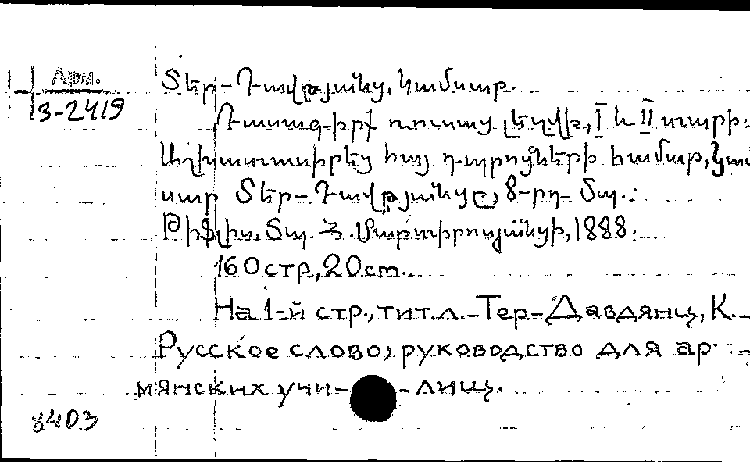 Арм.
3-2419
Տեր-Դավթյանց, Կամսար.
Դասագիրք ռուսաց լեզվի, I և II տարի.
Աշխատասիրեց հայ դպրոցների համար, Կամ
սար Տեր-Դավթյանցը, 8-րդ տպ.:
Թիֆլիս. Տպ. Յ. Մարտիրոսյանցի, 1888.
160стр, 20cm.
На 1-й стр., тит.л. Тер-Давдянц, К.
Русское слово, руководство для ар
мянских учи-лищ.
8403